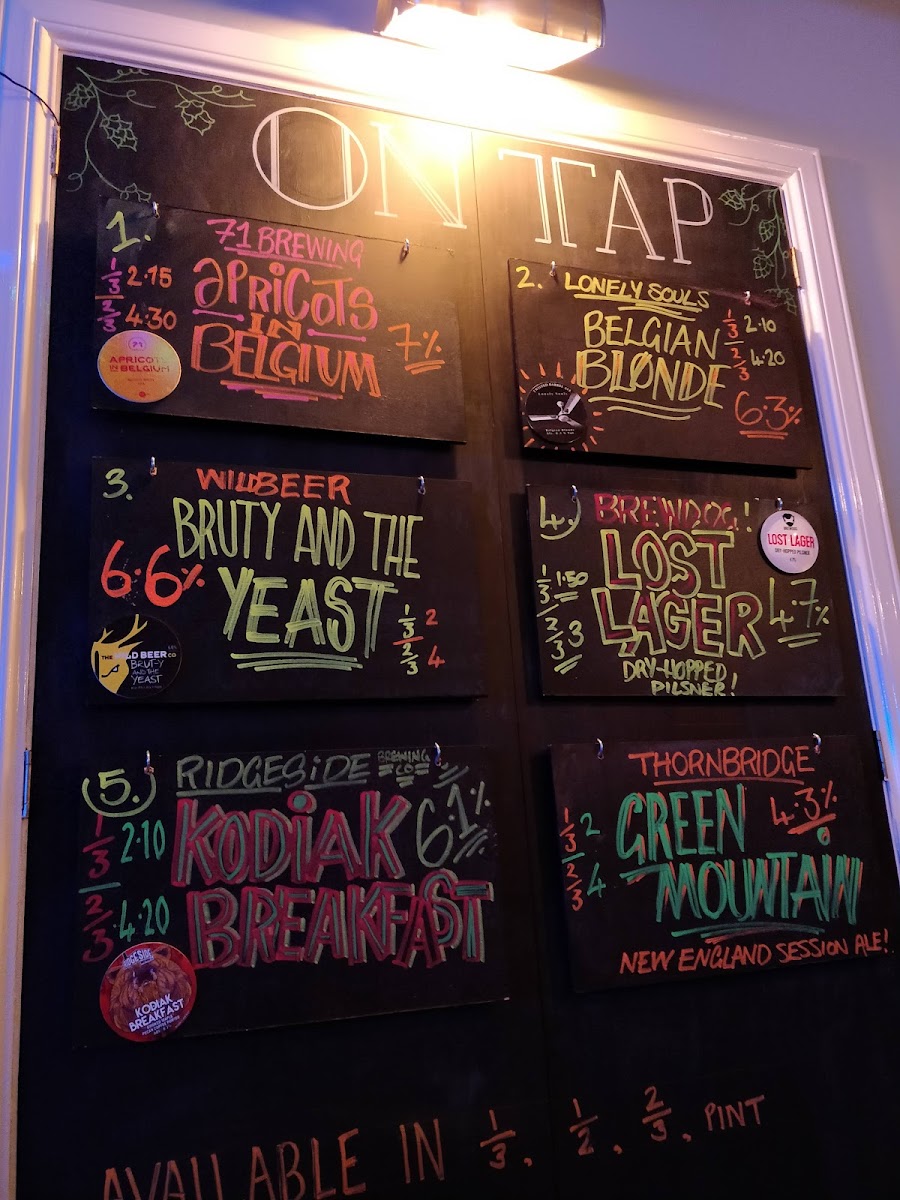 ON TAP
1.
71 BREWING
1/3 2.15
2/3 4.30
APRICOTS
IN
BELGIUM
7%
71
APRICOTS
IN BELGIUM
2.
LONELY SOULS
BELGIAN
BLONDE
1/3 2.10
2/3 4.20
6.3%
Lonely Souls
3.
WILDBEER
BRUTY AND THE
YEAST
6.6%
1/3 2
2/3 4
THE WILD BEER CO
BRUT-Y
AND THE
YEAST
4.)
BREWDOG!
LOST
LAGER
1/3 1.50
2/3 3
4.7%
DRY-HOPPED
PILSNER!
LOST LAGER
DRY-HOPPED PILSNER
5.
RIDGESIDE BREWING CO
KODIAK
BREAKFAST
6.1%
1/3 2.10
2/3 4.20
RIDGESIDE
KODIAK
BREAKFAST
THORNBRIDGE
GREEN
MOUNTAIN
4.3%
1/3 2
2/3 4
NEW ENGLAND SESSION ALE!
AVAILABLE IN 1/3, 1/2, 2/3, PINT